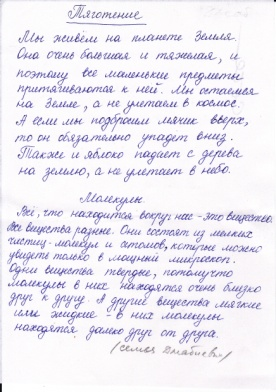 Тяготение
Мы живём на планете Земля.
Она очень большая и тяжелая, и
поэтому все маленькие предметы
притягиваются к ней. Мы остаемся
на Земле, а не улетаем в космос.
А если мы подбросим мячик вверх,
то он обязательно упадет вниз.
Также и яблоко падает с дерева
на землю, а не улетает в небо.
Молекулы.
Всё, что находится вокруг нас - это вещество.
Все вещества разные. Они состоят из мелких
частиц - молекул и атомов, которые можно
увидеть только в мощный микроскоп.
Одни вещества твердые, потому что
молекулы в них находятся очень близко
друг к другу. А другие вещества мягкие
или жидкие - в них молекулы
находятся далеко друг от друга.
(семья